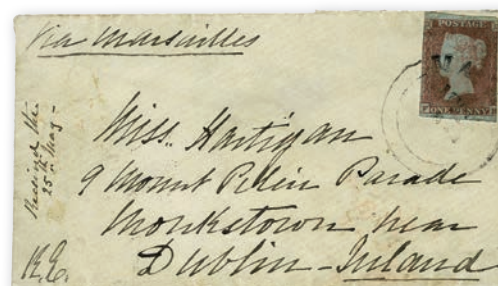 Via Marseilles
POSTAGE
ONE PENNY
Received the
25th May -
Miss. Hartigan
9 Mount Pekin Parade
Monkstown near
Dublin - Ireland